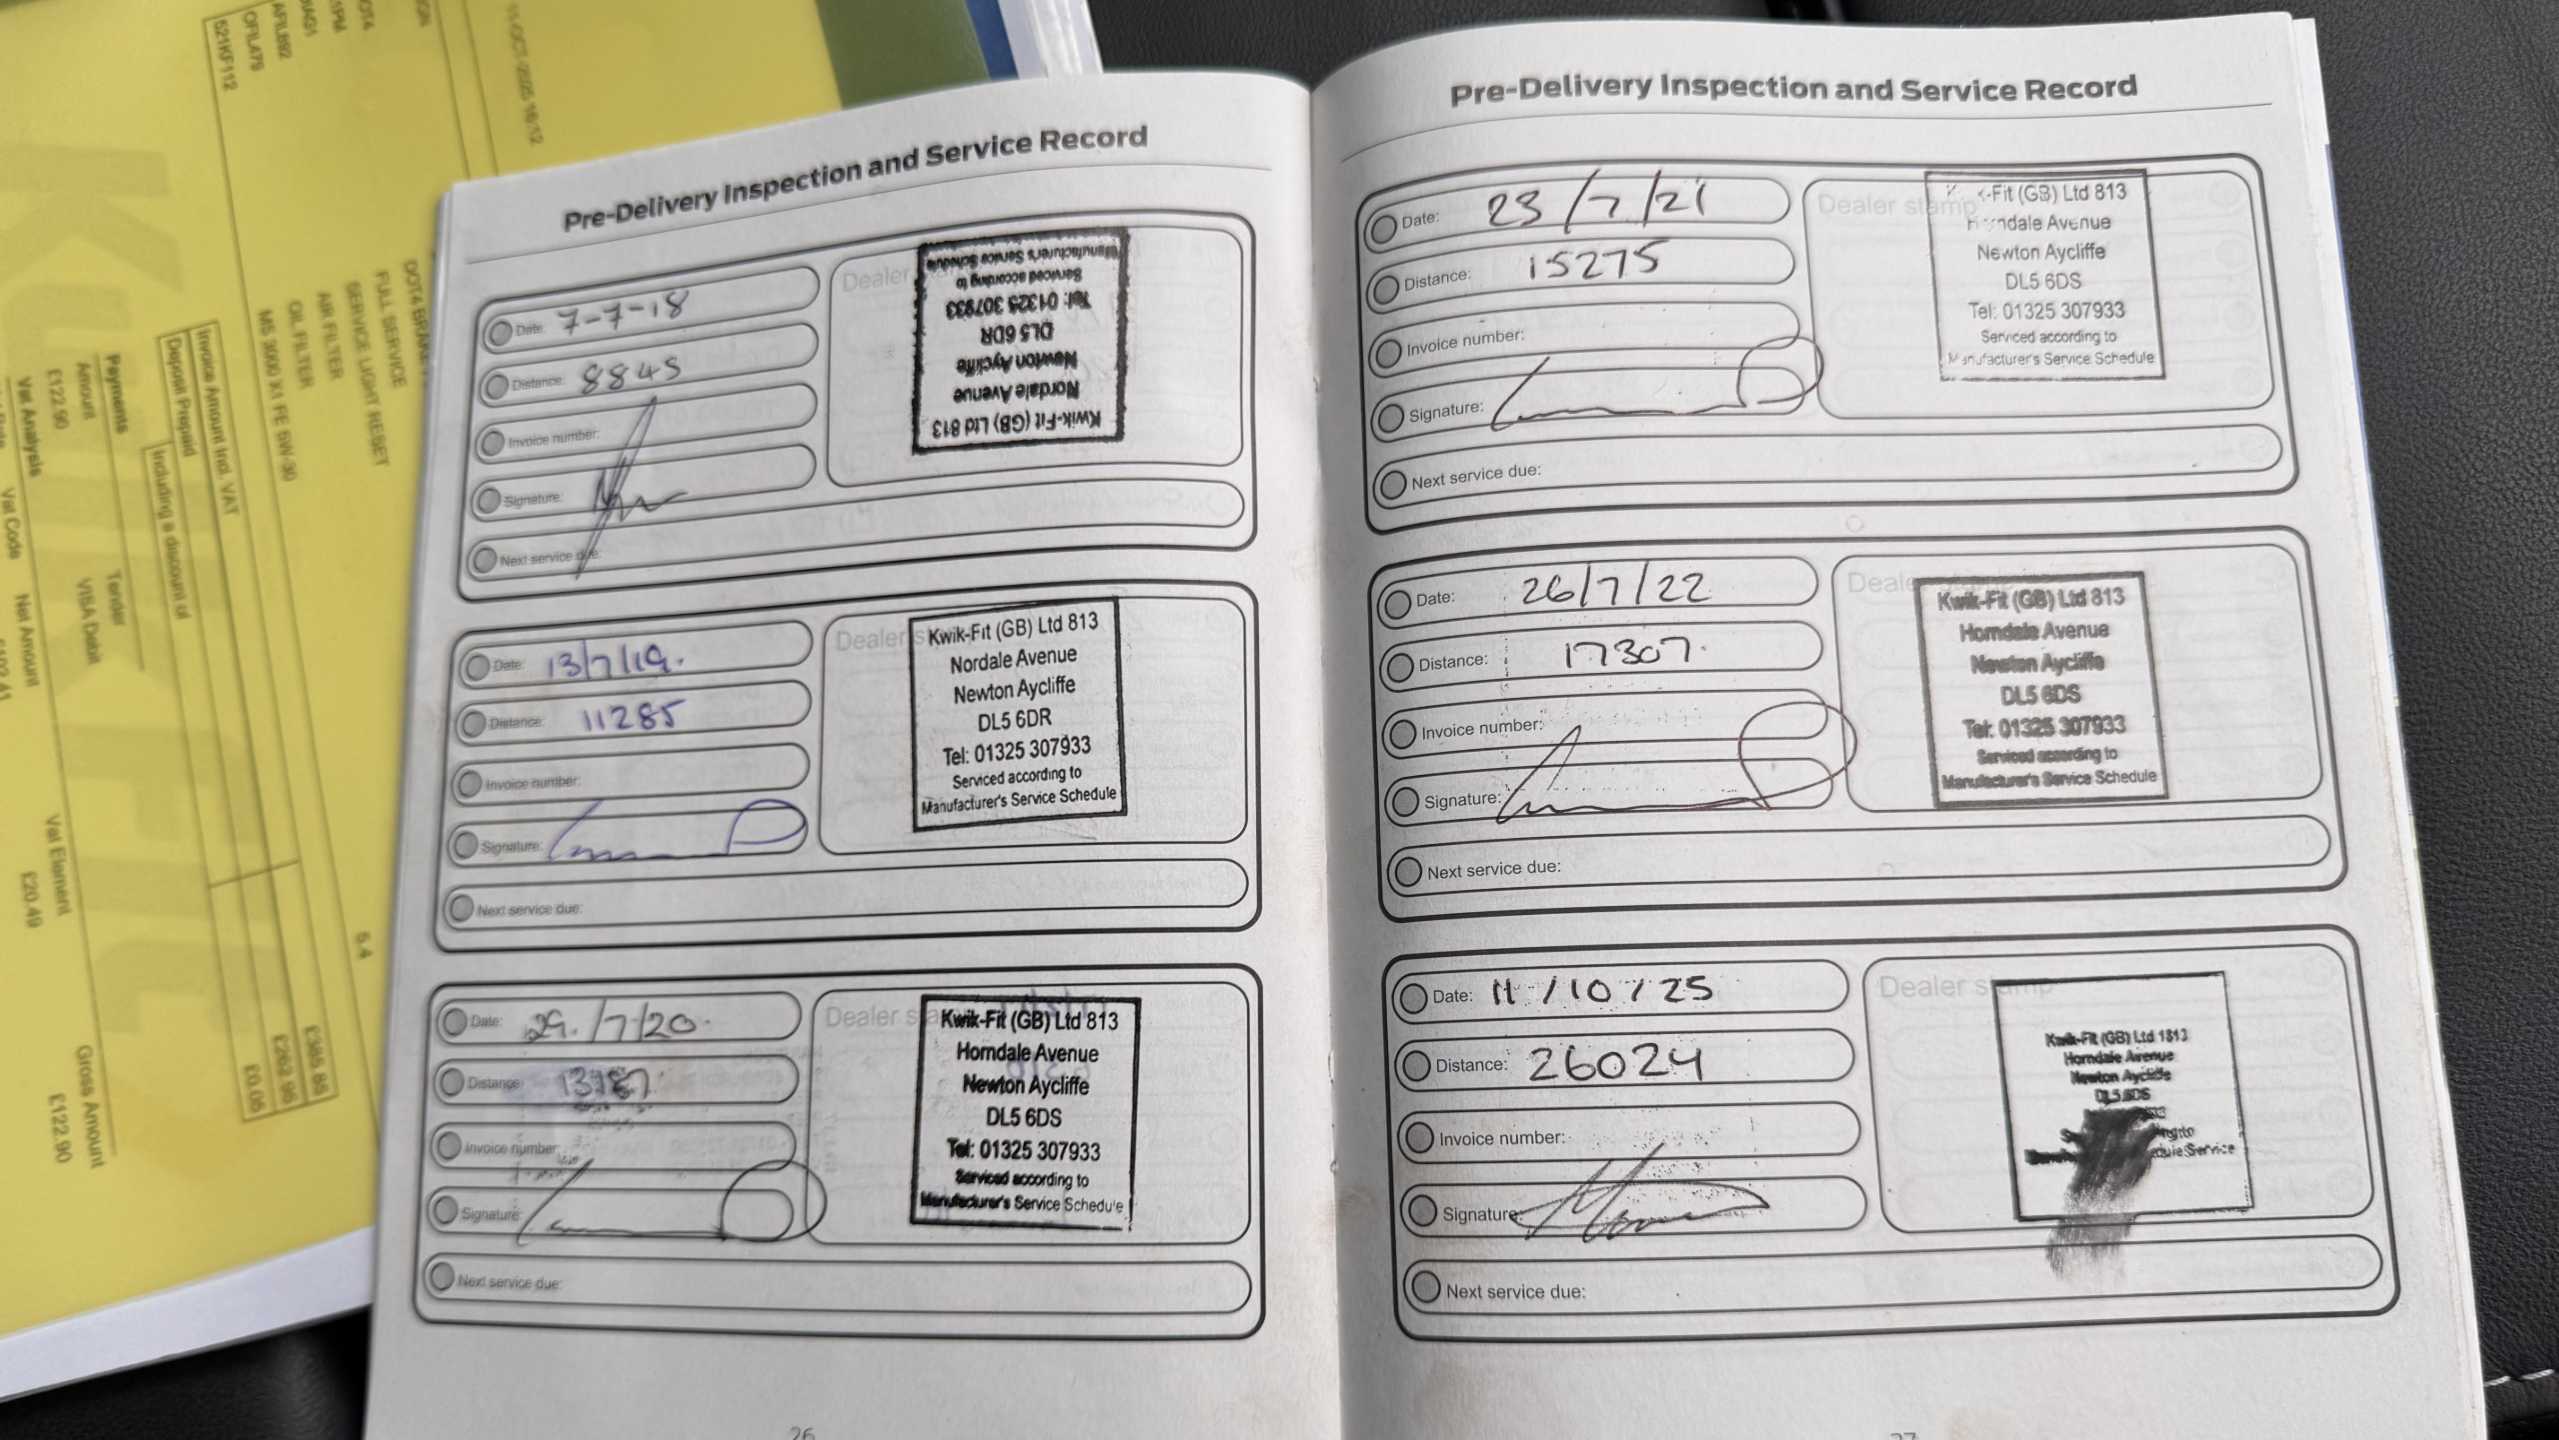 Pre-Delivery Inspection and Service Record
Date: 7-7-18
Distance: 8845
Invoice number:
Signature:
Next service due:
Dealer
Kwik-Fit (GB) Ltd 813
Nordale Avenue
Newton Aycliffe
DL5 6DR
Tel: 01325 307933
Serviced according to
Manufacturer's Service Schedule
Date: 13/7/19.
Distance: 11285
Invoice number:
Signature:
Next service due:
Dealer
Kwik-Fit (GB) Ltd 813
Nordale Avenue
Newton Aycliffe
DL5 6DR
Tel: 01325 307933
Serviced according to
Manufacturer's Service Schedule
Date: 29./7/20.
Distance:
Invoice number:
Signature:
Next service due:
Dealer
Kwik-Fit (GB) Ltd 813
Horndale Avenue
Newton Aycliffe
DL5 6DS
Tel: 01325 307933
Serviced according to
Manufacturer's Service Schedule
26
Pre-Delivery Inspection and Service Record
Date: 23/7/21
Distance: 15275
Invoice number:
Signature:
Next service due:
Dealer stamp
-Fit (GB) Ltd 813
Horndale Avenue
Newton Aycliffe
DL5 6DS
Tel: 01325 307933
Serviced according to
Manufacturer's Service Schedule
Date: 26/7/22
Distance: 17307.
Invoice number:
Signature:
Next service due:
Dealer stamp
Kwik-Fit (GB) Ltd 813
Horndale Avenue
Newton Aycliffe
DL5 6DS
Tel: 01325 307933
Serviced according to
Manufacturer's Service Schedule
Date: 11/10/25
Distance: 26024
Invoice number:
Signature:
Next service due:
Dealer stamp
Kwik-Fit (GB) Ltd 1813
Horndale Avenue
Newton Aycliffe
DL5 6DS
Service
27
11-OCT-2025 16:12
DOT4
FULL SERVICE
SERVICE LIGHT RESET
AIR FILTER
OIL FILTER
MS 3000 X1 FE 5W-30
5.4
OFIL479
521KF112
Invoice Amount Incl. VAT £385.86
Deposit Prepaid £262.96
Including a discount of £0.05
Payments
Amount Tender
£122.90 VISA Debit
Vat Analysis
Vat Code Net Amount Vat Element Gross Amount
£20.49 £122.90